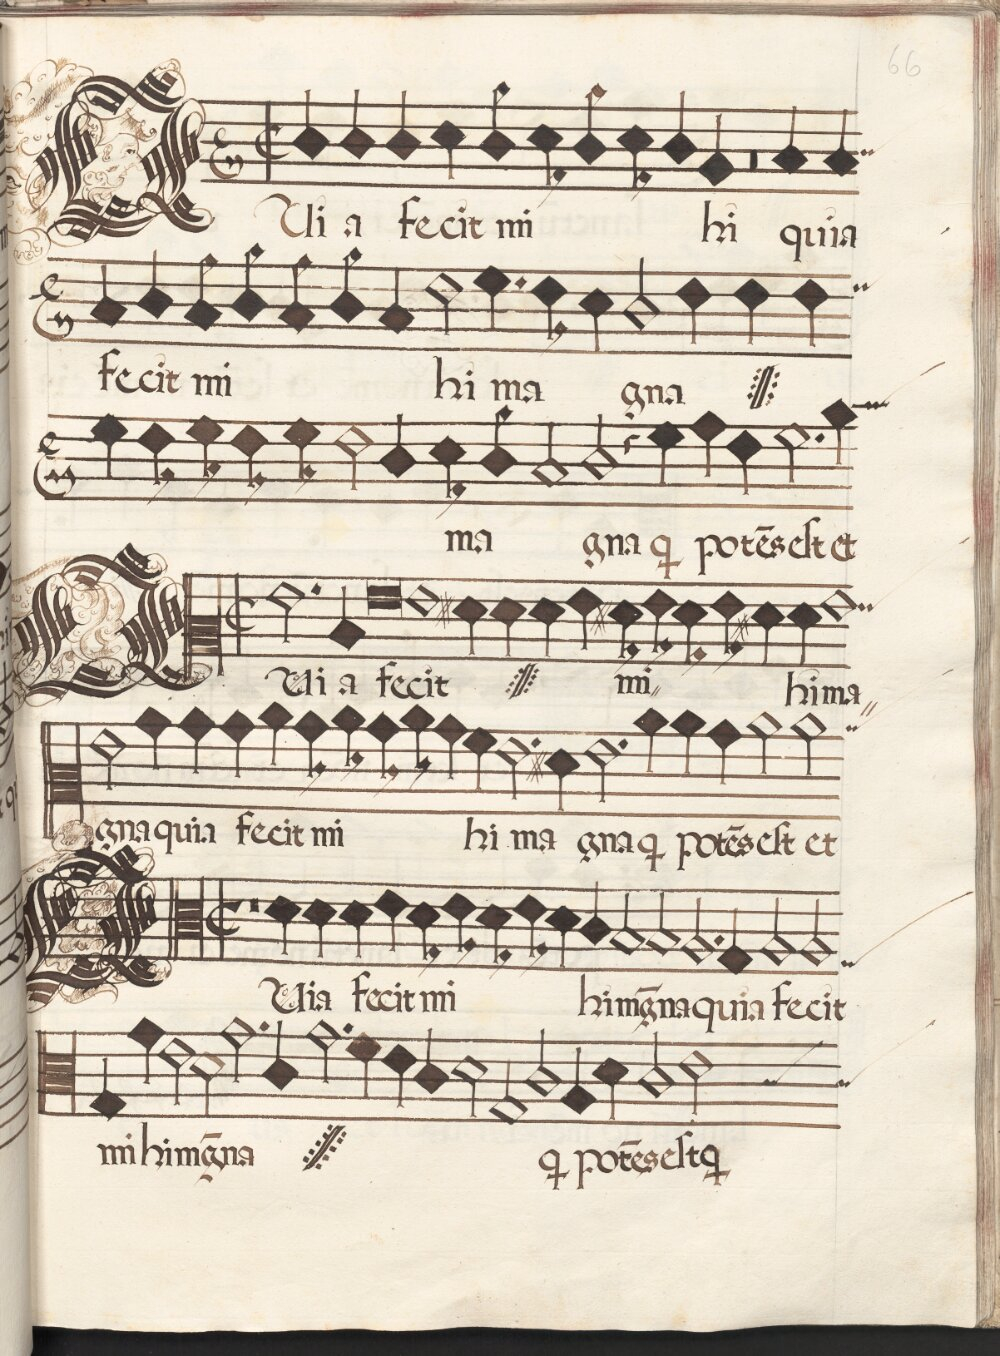 66
QUia fecit mi hi quia
fecit mi hi ma gna
ma gna q potēs est et
QUia fecit mi hi ma
gna quia fecit mi hi ma gna q potēs est et
QUia fecit mi hi mḡna quia fecit
mi hi mḡna q potēs est q